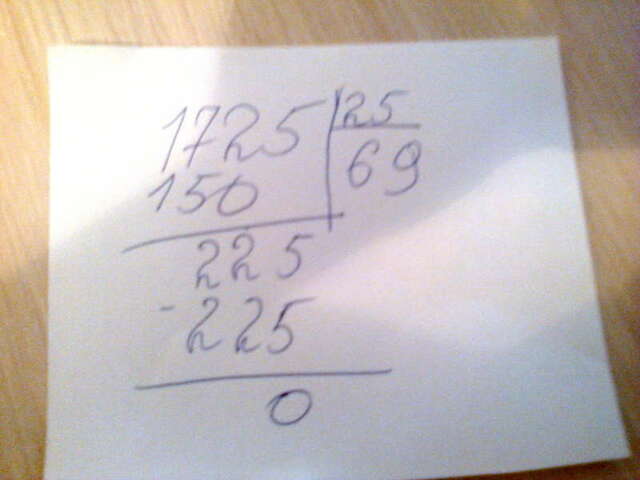 1725 25
150 69
225
-225
0